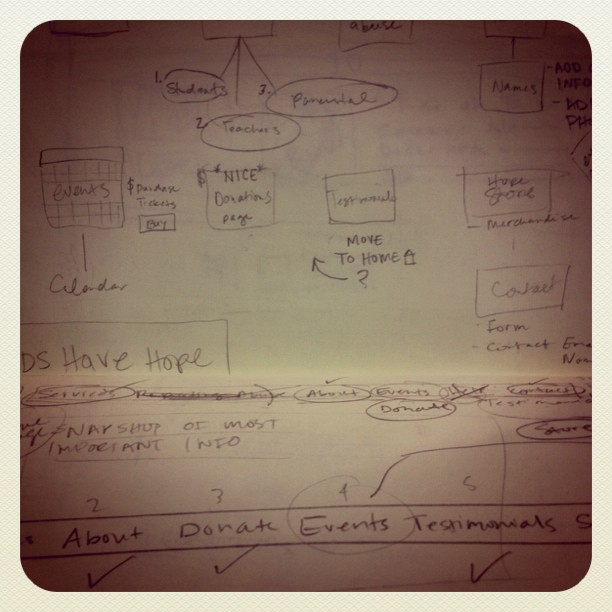 abuse
1. Students
3.
2. Teachers
Names
- ADD
INFO
events
$ Purchase
Tickets
BUY
Calendar
$ *NICE*
Donations
page
Testimonials
MOVE
TO HOME
?
Hope
Store
- Merchandise
Contact
- Form
- Contact
DS HAVE HOPE
Services
About
Events
Donate
Store
SNAPSHOT OF MOST
IMPORTANT INFO
2 3 4 5
About Donate Events Testimonials S